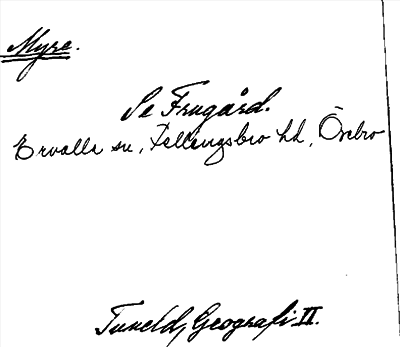 Myre.
Se Frugård.
Ervalla sn, Fellingsbro hd, Örebro
Tuneld, Geografi II.